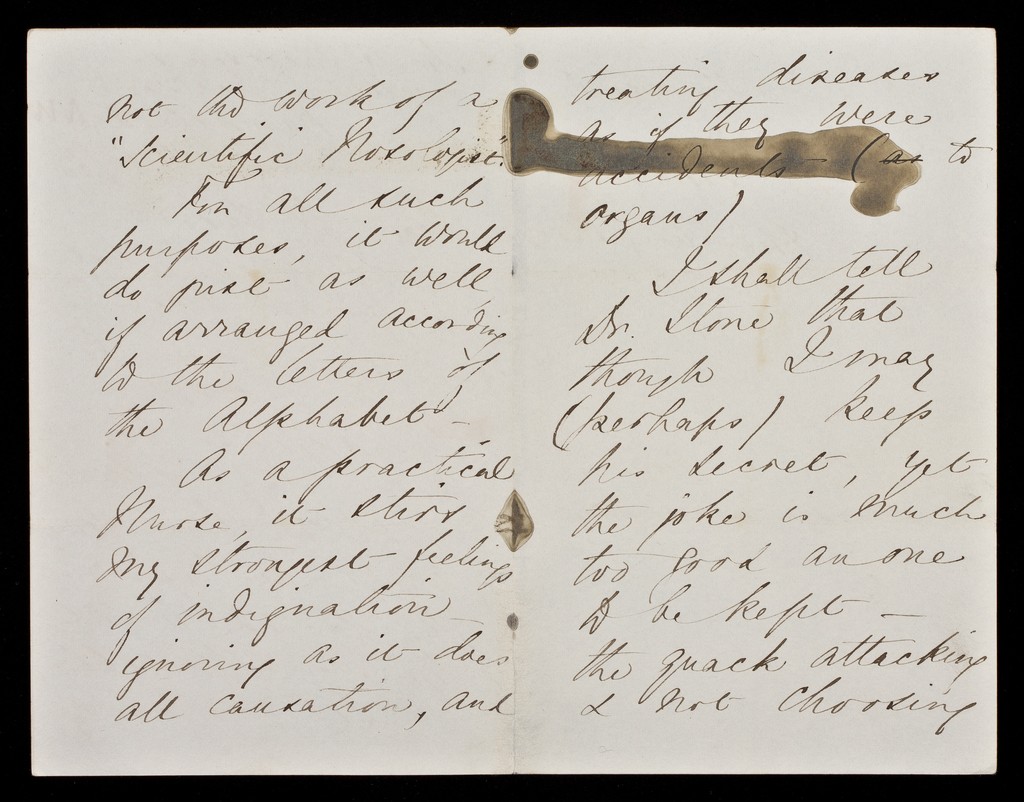 not the work of a
"Scientific Nosologist."
For all such
purposes, it would
do just as well
if arranged according
to the letters of
the Alphabet –
As a practical
Nurse, it stirs
my strongest feelings
of indignation –
ignoring as it does
all causation, and
treating diseases
as if they were
accidents (as to
organs)
I shall tell
Dr. Stone that
though I may
(perhaps) keep
his secret, yet
the joke is much
too good an one
to be kept –
the quack attacking
& not choosing